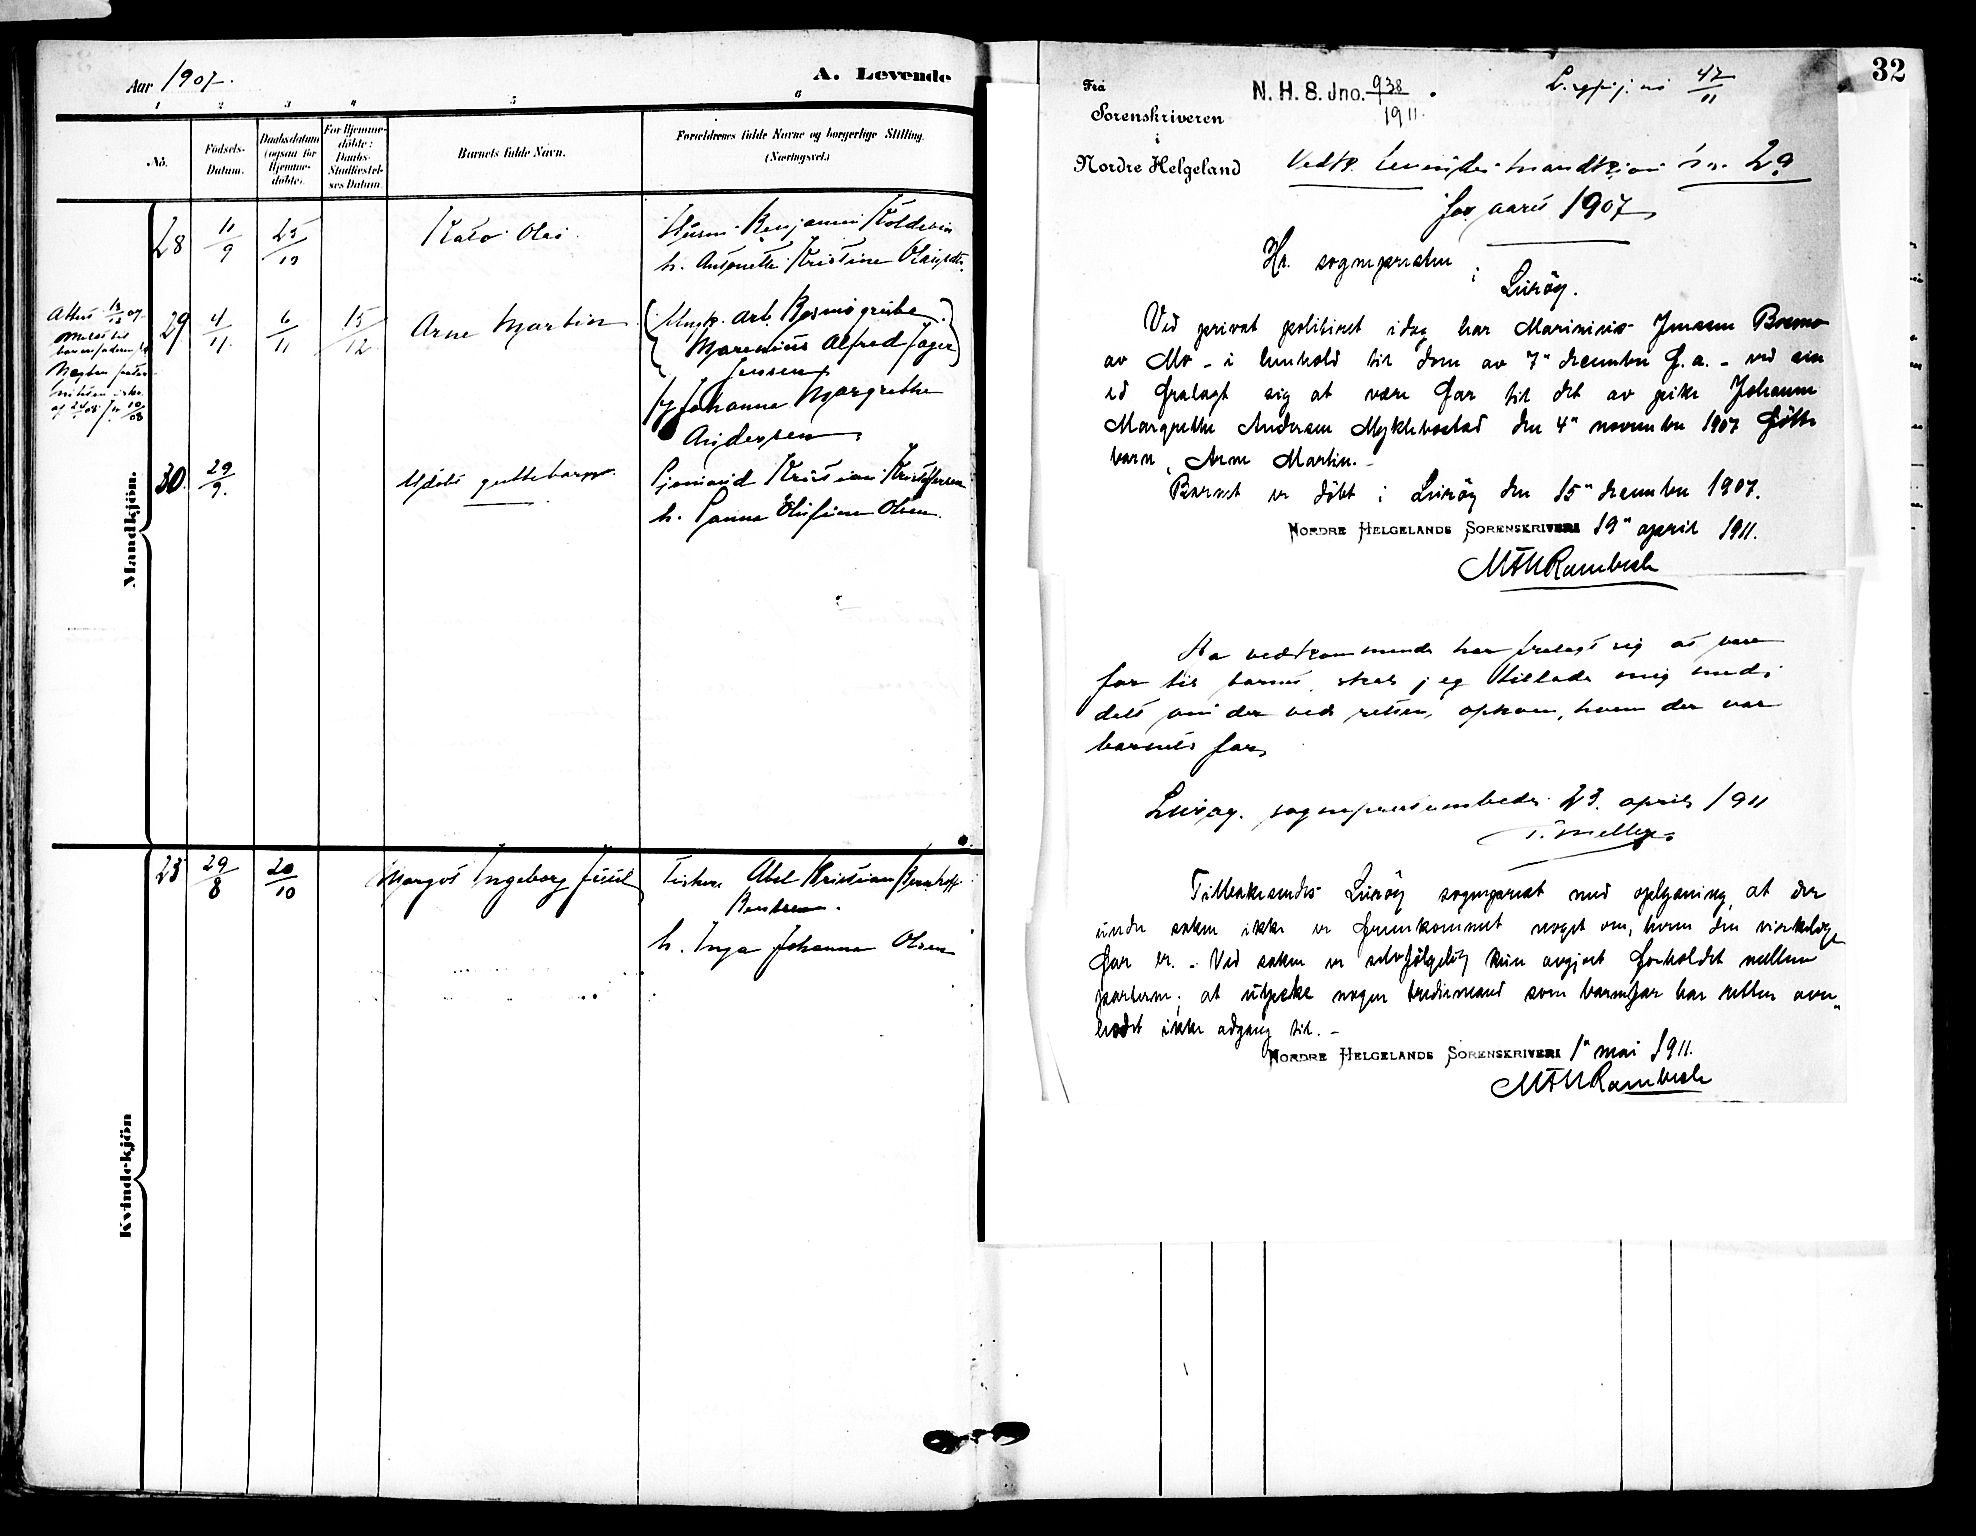 Aar 1907.
A. Levende
1 2 3 4 5 6
No.
Fødsels-Datum.
Daabsdatum (ogsaa for Hjemme-døbte).
For Hjemme-døbte: Daabs-Stadfæstel-ses Datum.
Barnets fulde Navn.
Forældrenes fulde Navne og borgerlige Stilling.
(Næringsvei.)
Mandkjøn.
28
11/9
Kato Olai
Husm. Benjamin Koldevin
h. Antonette Kristine
29
4/11
6/11
15/12
Arne Martin
Ungk. arb. Bosmogrube
Marenius Alfred Jäger
Jensen
pg Johanna Margrethe
Andersen
30.
29/9.
Udøbt guttebarn.
Kristian Kristoffersen
h. Olufine Olsen.
Kvindekjøn
25
29/8
20/10
Margot Ingeborg Juul
Fisker Abel Kristian
Bentsen.
h. Inga Johanna Olsen
32
Fra
Sorenskriveren
i
Nordre Helgeland
N. H. S. Jno. 938/1911.
47/11
Vedk. levende mandkjøn nr. 29
for aaret 1907
Hr. sognepresten
i
Lurøy.
Ved privat politiret idag har Marinius Jensen Bosmo
av Mo - i henhold til dom av 7de december f. a. - ved sin
ed fralagt sig at være far til det av pike Johanne
Margrethe Andersen Myklebostad den 4de november 1907 fødte
barn, Arne Martin. -
Barnet er døbt i Lurøy den 15de december 1907.
NORDRE HELGELANDS SORENSKRIVERI 19de april 1911.
Da vedkommende har fralagt sig at være
far til barnet, skal jeg tillade mig med-
delt om der ved retten opkom, hvem der var
barnets far.
Lurøy sogneprestembede 23. april 1911
Tilbakesendes Lurøy sogneprest med oplysning, at der
under saken ikke er fremkommet noget om, hvem den virkelige
far er. - Ved saken er selvfølgelig kun avgjort forholdet mellem
parterne; at utpeke nogen tredjemand som barnefar har retten over-
hodet ikke adgang til. -
NORDRE HELGELANDS SORENSKRIVERI 1ste mai 1911.